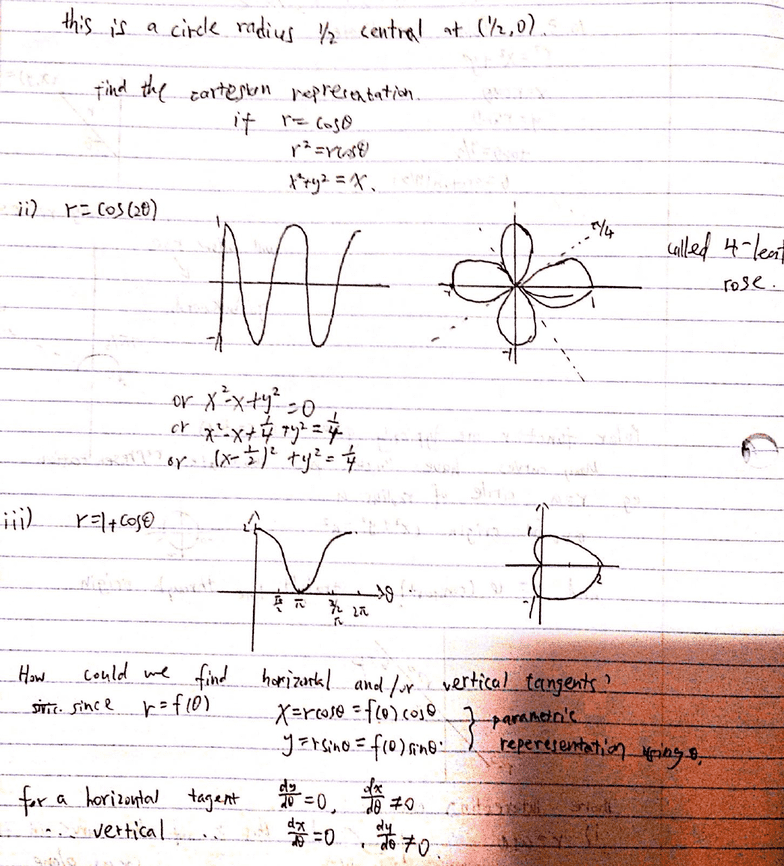 this is a circle radius 1/2 central at (1/2,0).
Find the cartesian representation.
if r=cosθ
r²=rcosθ
x²+y²=x.
ii) r=cos(2θ)
1
-1
π/4
1
-1
called 4-leaf
rose.
or x²-x+y²=0
or x²-x+1/4+y²=1/4
or (x-1/2)²+y²=1/4
iii) r=1+cosθ
2
π/2 π 3/2π 2π θ
1
2
-1
How could we find horizontal and/or vertical tangents?
since r=f(θ) x=rcosθ=f(θ)cosθ } parametric
y=rsinθ=f(θ)sinθ. reperesentation using θ.
for a horizontal tagent dy/dθ=0, dx/dθ≠0
... vertical ... dx/dθ=0, dy/dθ≠0.